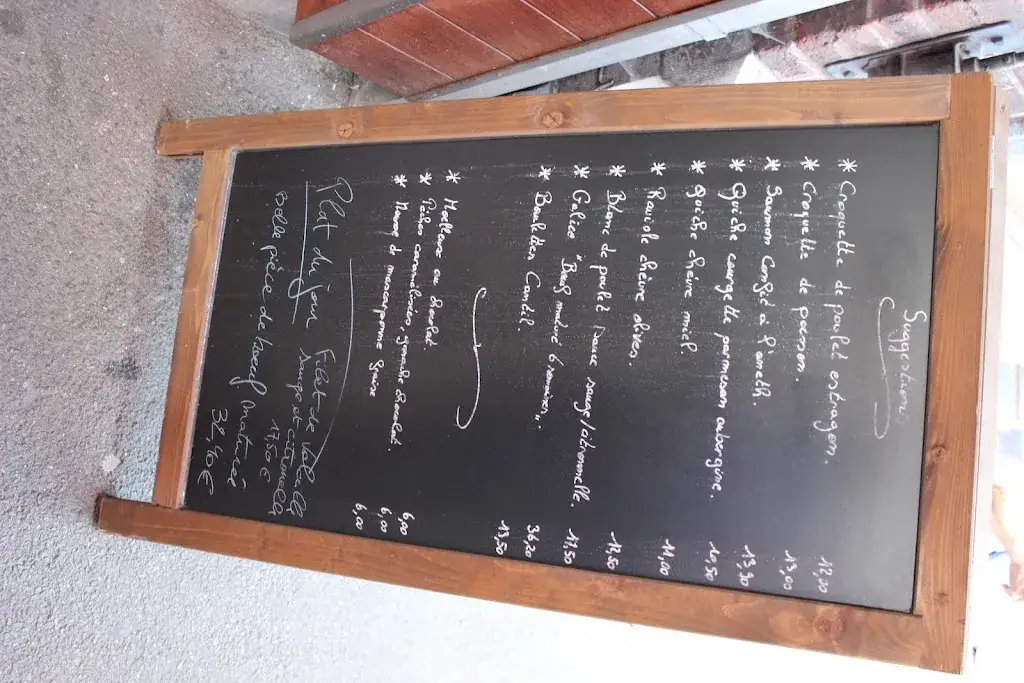 Suggestions
* Croquette de poulet estragon. 12,00
* Croquette de poisson. 13,00
* Saumon Confit à l'aneth. 13,90
* Quiche courgette parmesan aubergine. 10,50
* Quiche chèvre miel. 11,00
* Raviole chèvre olives. 12,50
* Blanc de poulet sauce sauge/citronnelle. 11,50
* Galice "Bœuf maturé 6 semaines". 36,20
* Boulettes Candil. 13,50
* Moelleux au chocolat. 6,00
* Pêches caramélisées, ganache chocolat. 6,00
* Mousse de mascarpone fraise 6,00
Plat du jour Filet de volaille
sauge et citronnelle
17,50€
Belle pièce de bœuf maturée
38,40€